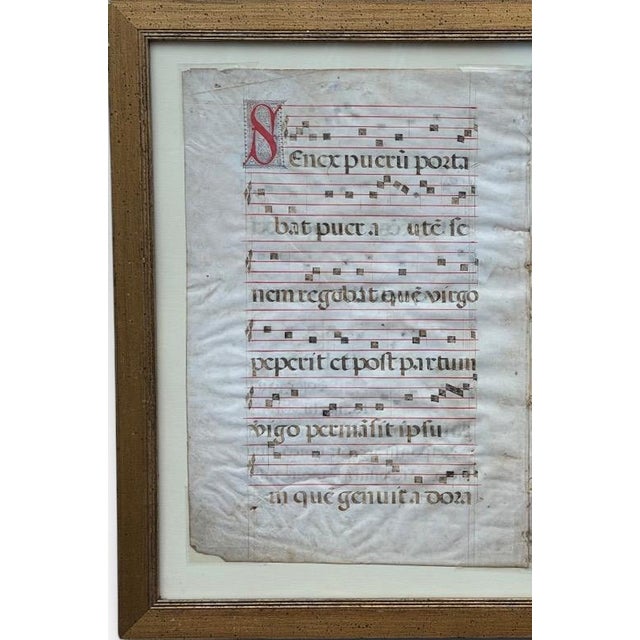 SEnex puerũ porta
bat puer a utẽ se
nem regebat quẽ virgo
peperit et post partum
virgo permãsit ipsu
m quẽ genuit adora